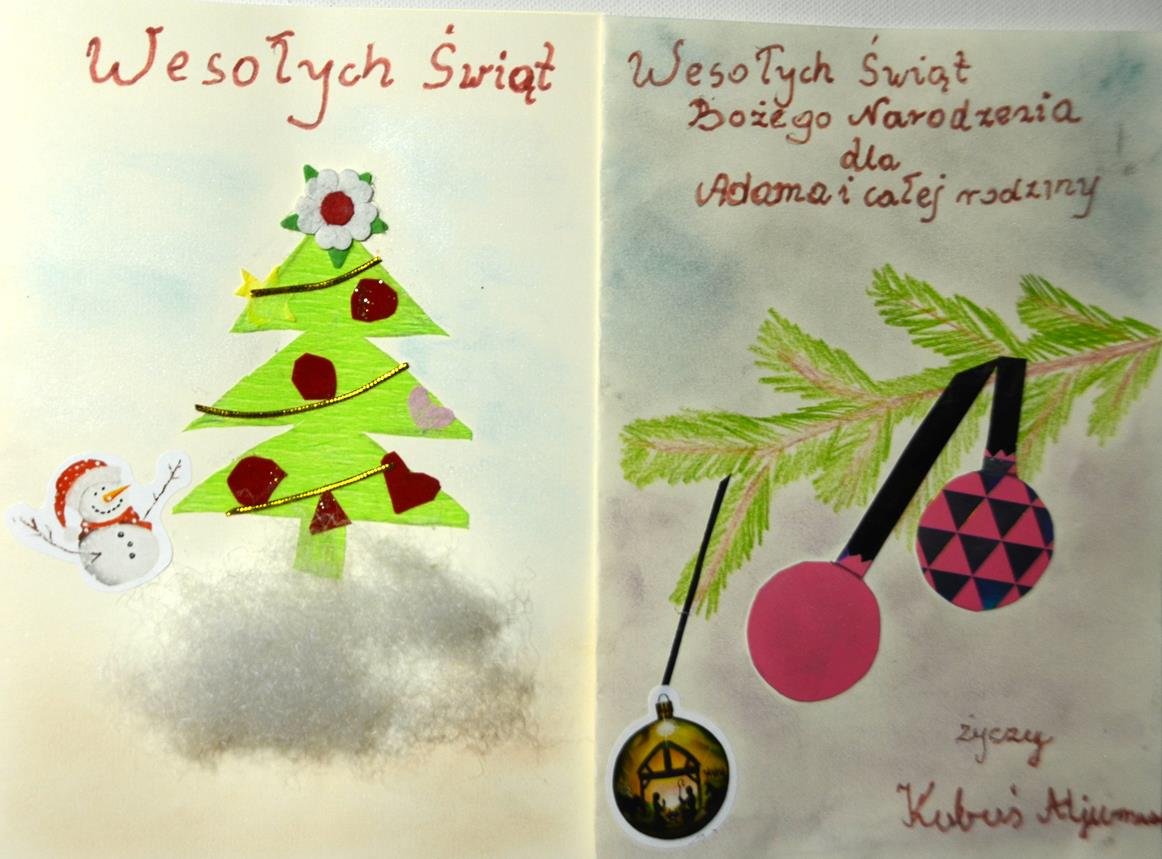 Wesołych Świąt
Wesołych Świąt
Bożego Narodzenia
dla
Adama i całej rodziny
życzy
Kubuś